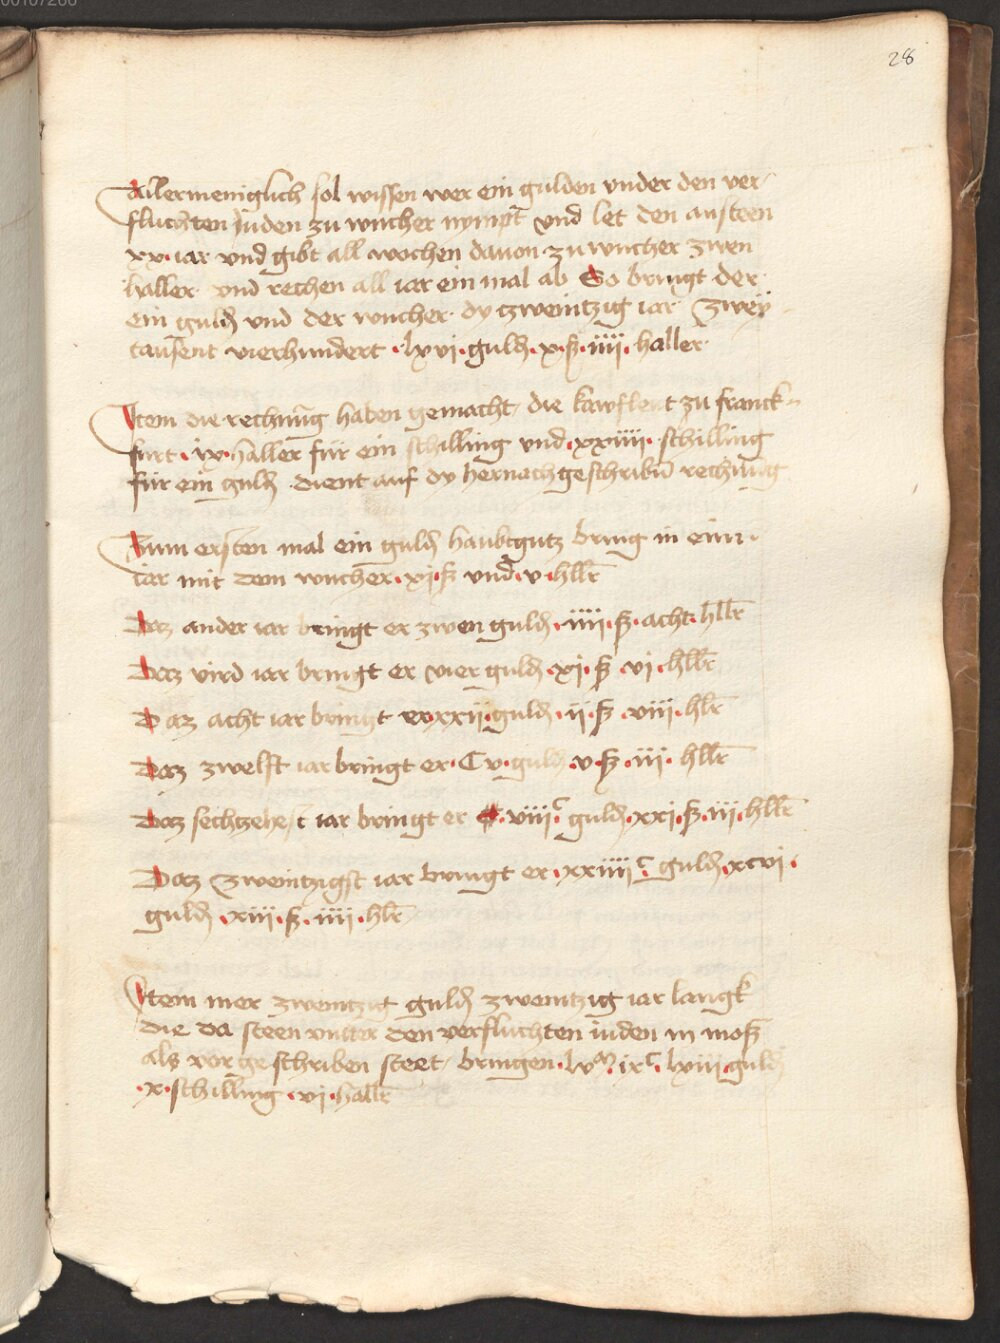 00107266
28
Allermeniglich sol wissen wer ein gulden vnder den ver
fluchten Juden zu wucher nympt vnd let den ansteen
xx · iar vnd gibt all wochen dauon zu wucher zwen
haller vnd rechen all iar ein mal ab So bringt der
ein guld vnd der wucher dy zweintzig iar zwey
tausent vierhundert · lxvi · guld · x · ß · iiii · haller
Item die rechnung haben gemacht die kawflewt zu franck
furt · ix · haller für ein schilling vnd · xxiiii · schilling
für ein guld dient auf dy hernachgeschribn rechnung
Zum ersten mal ein guld haubtgutz bring in eim
iar mit dem wucher · xj · ß vnd · v · hllr
Daz ander iar bringt er zwen guld · iiii · ß · acht · hllr
Daz vird iar bringt er vier guld · xj · ß · vi · hllr
Daz acht iar bringt er xxii · guld · ii · ß · viii · hlr
Daz zwelft iar bringt er · C v · guld · v · ß · iii · hllr
Daz sechzehest iar bringt er · viii · c guld · xxj · ß · iii · hllr
Daz zweintzigst iar bringt er · xxiiii · c guld · xcvi ·
guld · xiii · ß · iiii · hlr
Item mer zweintzig guld zweintzig iar langk
die da steen vnter den verfluchten iuden in moß
als vor geschriben steet bringen · ixc · lxiii guld
· x · schilling · vi · hallr